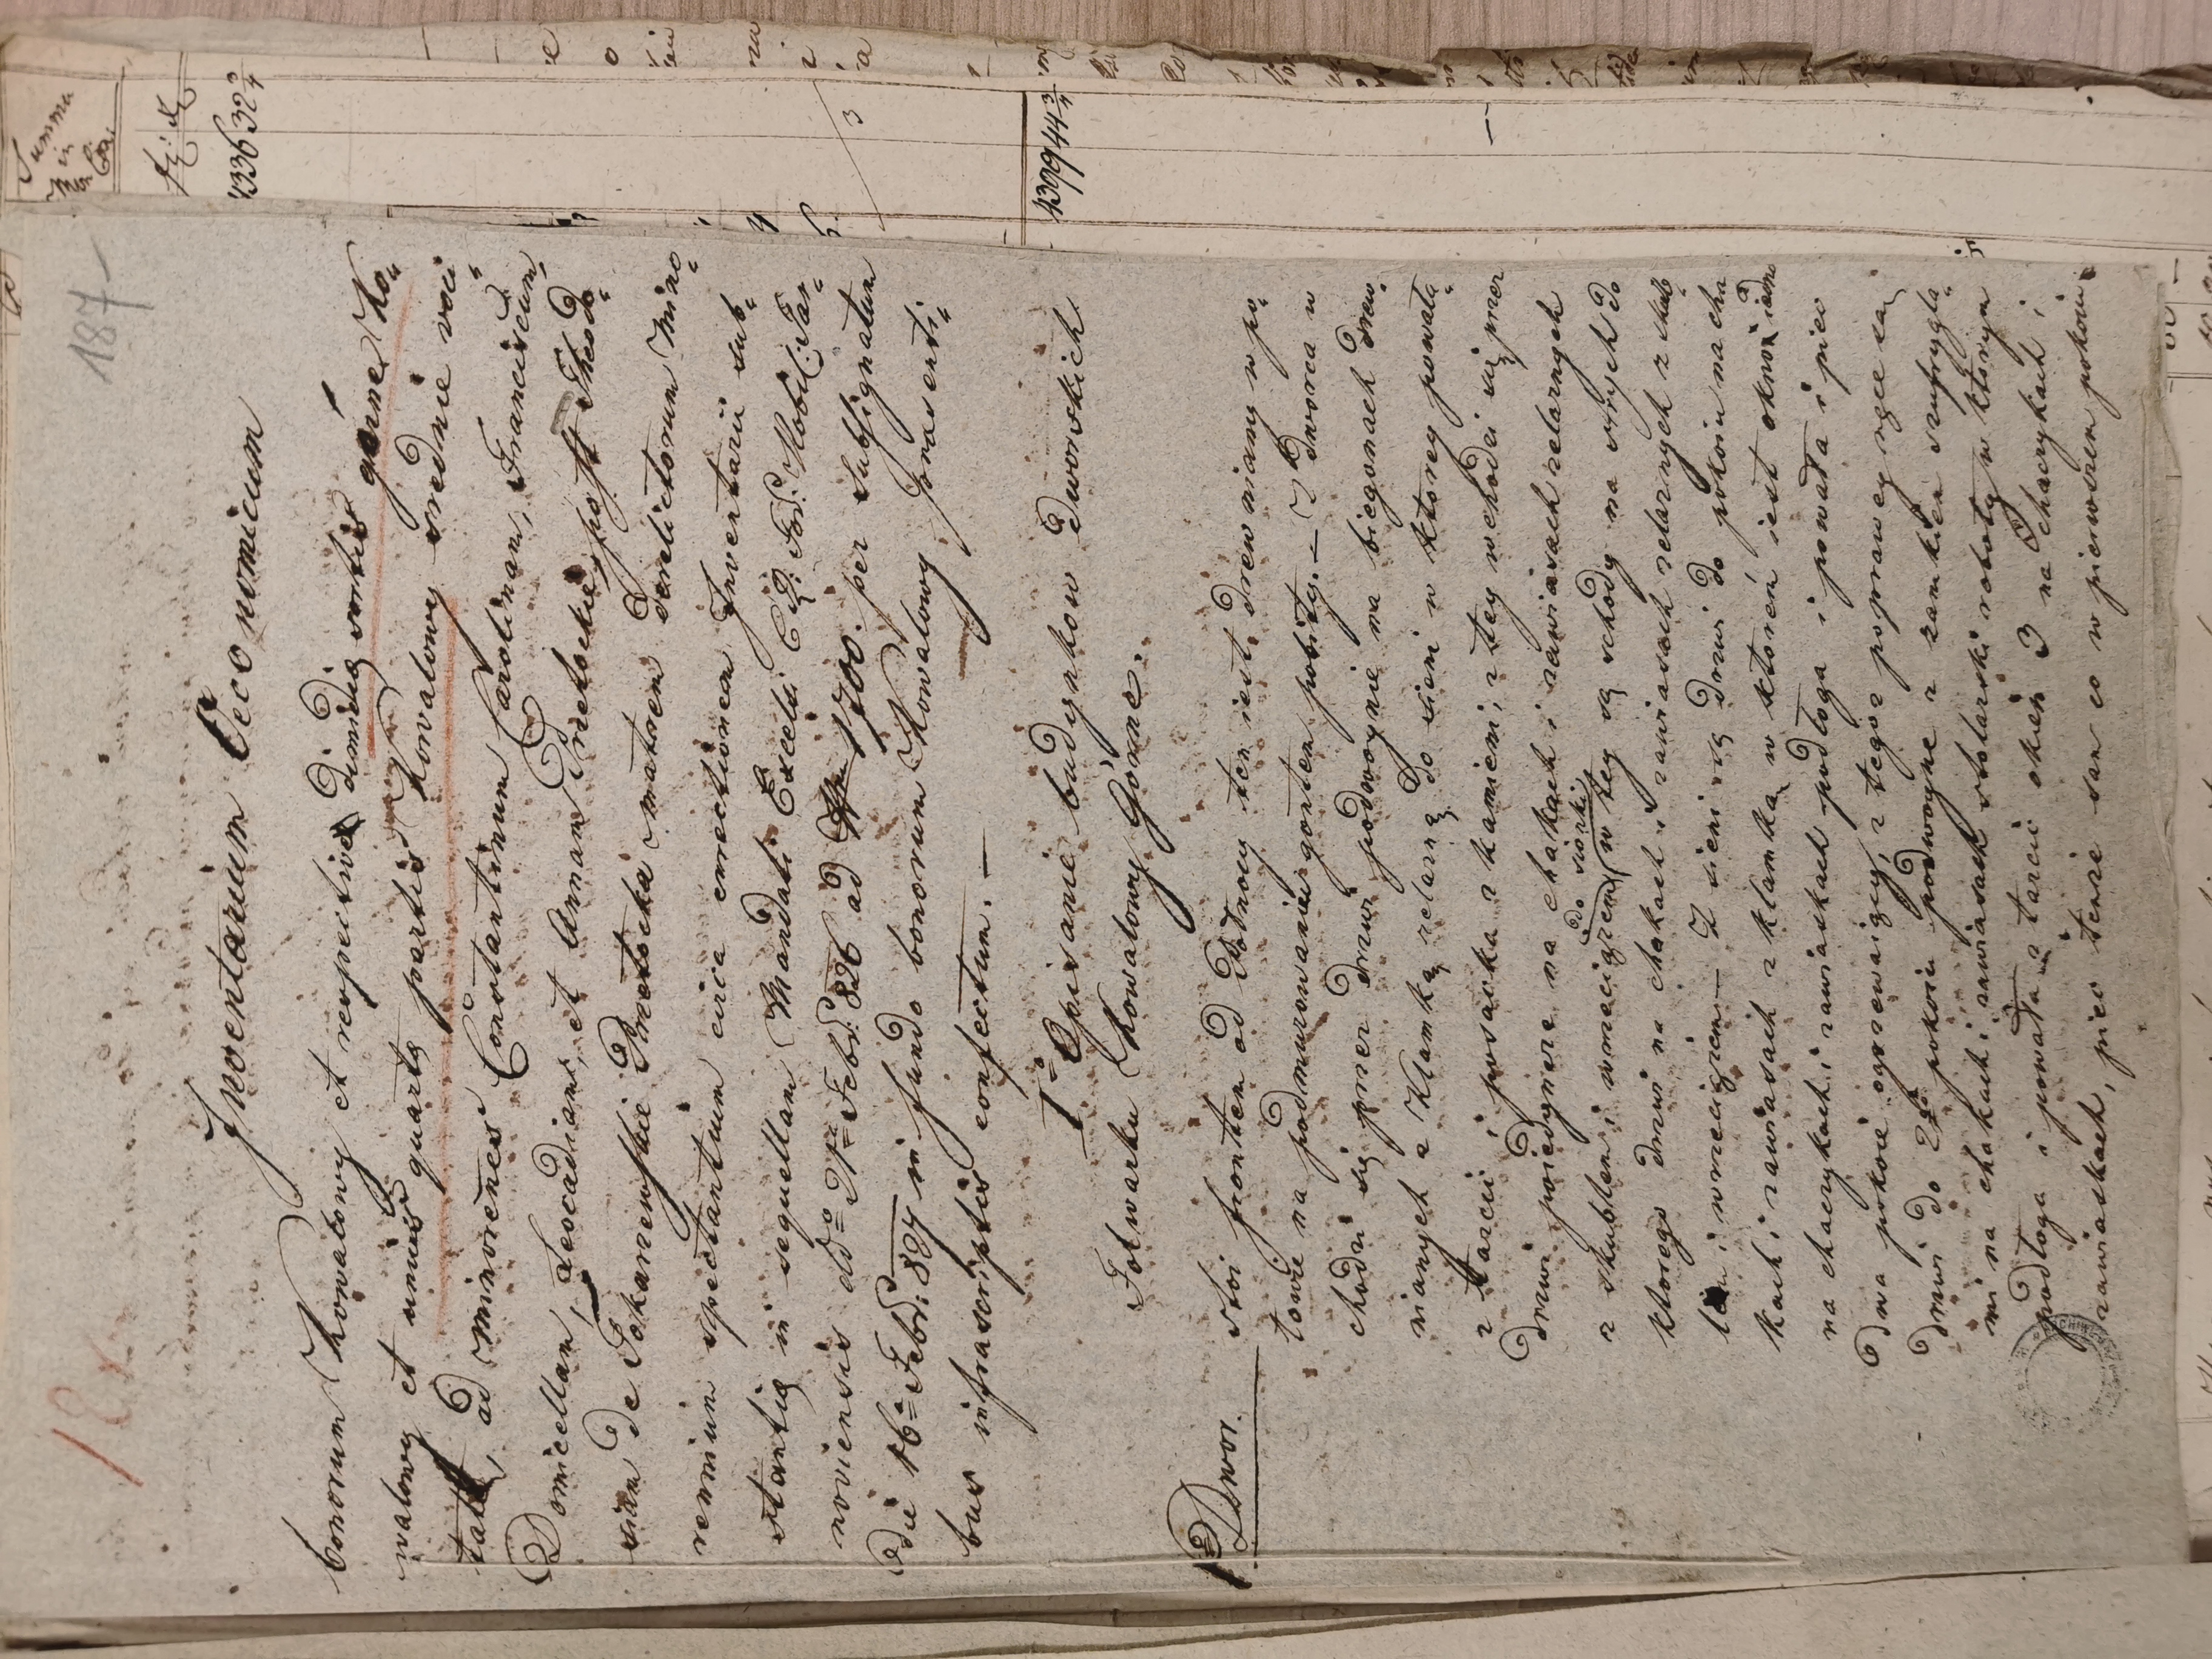 187
Inventarium Oeconomicum
bonorum Kowalowy et respective dimidiæ sortis górne Ko„
walowy et unius quartæ partis Kowalowy srednie voci„
tatæ, ad minorenes Constantinum Carolinam, Franciscum,
Domicellam, Leocadiam, et Annam Pretockie post Theodo„
siam de Tokarzewskie Pretocka matrem derelictorum mino„
rennium spectantium circa erectionem Inventarii sub„
stantiæ in sequellam Mandati Excelsi C. R. Fori Nobil: Tar„
noviensis dd° 21 Febr: 826 ad Nrm 1700. per Subsignatum
die 16 Febr: 827 in fundo bonorum Kowalowy præsenti„
bus infrascriptis confectum. —
I° Opisanie budynkow dworskich
Folwarku Kowalowy Górne.
1° Dwor.
stoi frontem od Wschodu ten iest drewniany w po„
łowie na podmurowaniu gontem pobity. — Z dworca w
chodzi się przez drzwi podwoyne na biegonach drew„
nianych z klamką żelazną do sieni w ktorey powała
z tarcic i posadzka z kamieni, z tey wchodzi się przez
drzwi poiedyncze na chakach i zawiasach żelaznych
z skublem i wrzeciądzem do sionki, w tey są schody na strych do
ktorego drzwi na chakach i zawiasach żelaznych z skub„
lem i wrzeciądzem — Z sieni są drzwi do pokoiu na cha„
kach i zawiasach z klamką w ktorem iest okno iedno
na chaczykach i zawiaskach podłoga i powała i piec
dwa pokoie ogrzewaiący, z tegoż poprawey ręce są
drzwi do 2go pokoiu podwoyne z zamkiem szufrygla„
mi na chakach i zawiasach stolarski roboty w ktorym
podłoga i powała z tarcic okien 3 na chaczykach i
zawiaskach, piec tenże sam co w pierwszem pokoiu
Summa
in
43363 2 2/4
3
439944 3/4